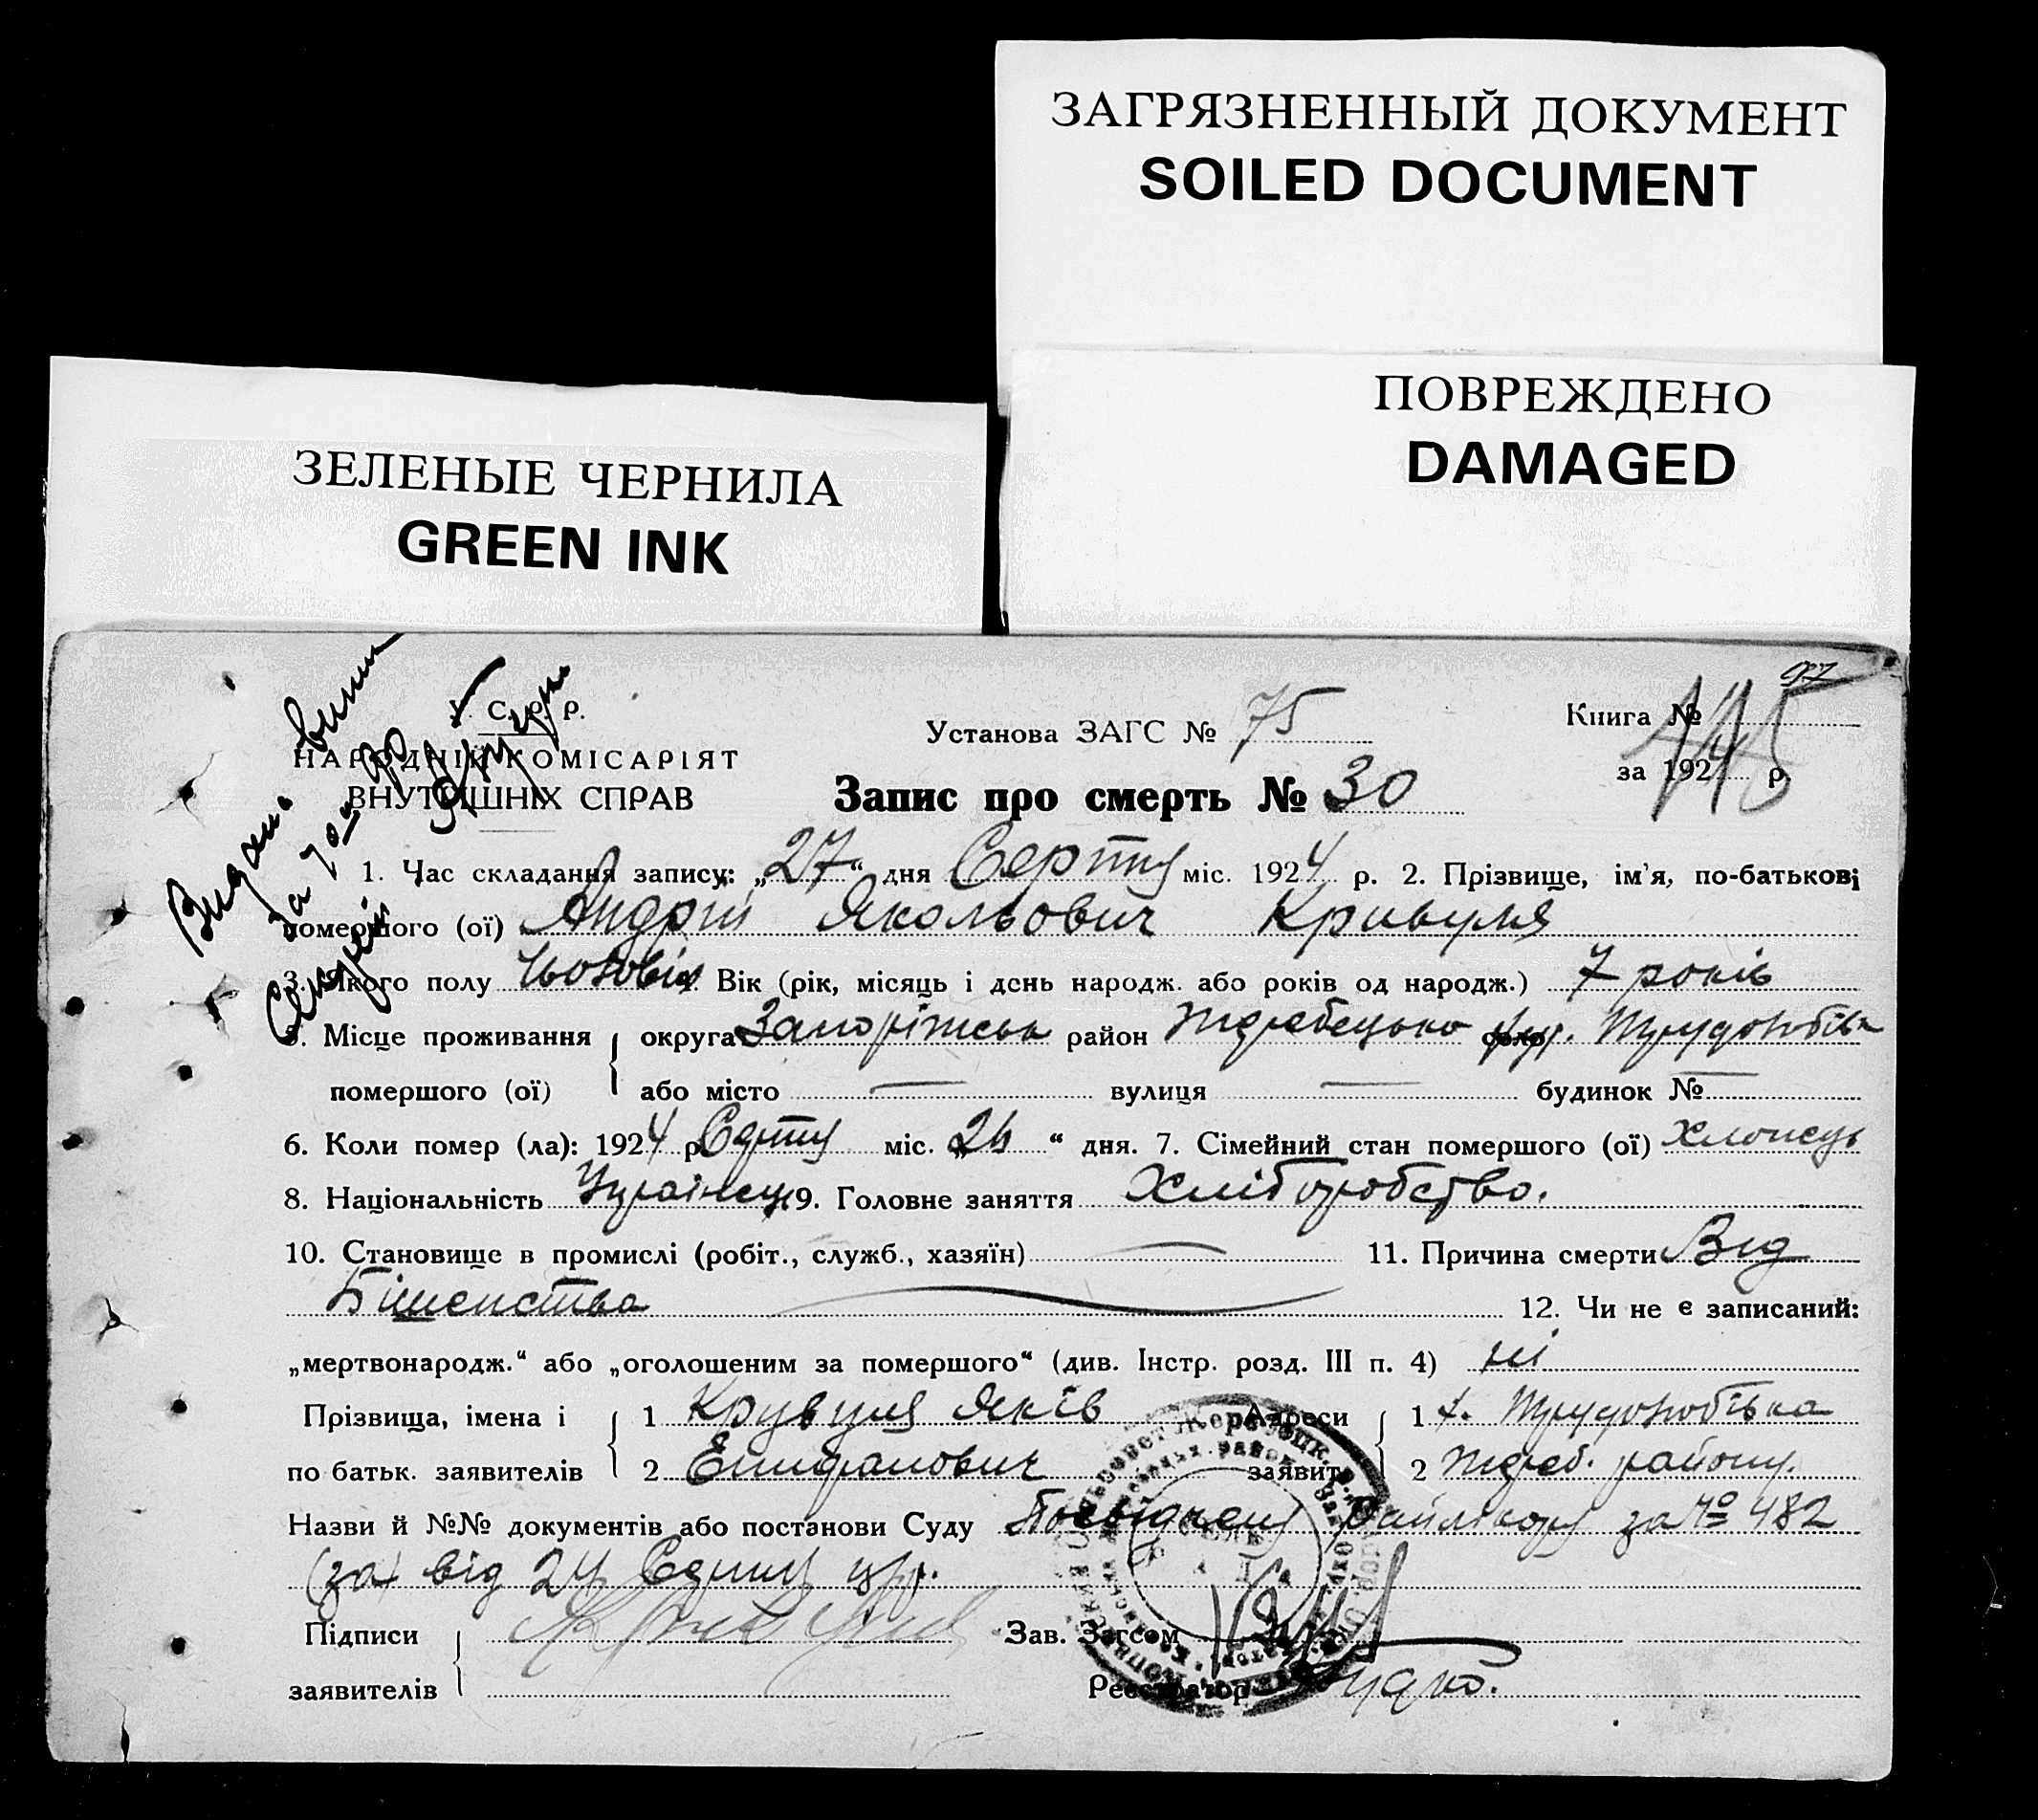 ЗАГРЯЗНЕННЫЙ ДОКУМЕНТ
SOILED DOCUMENT
ПОВРЕЖДЕНО
DAMAGED
ЗЕЛЕНЫЕ ЧЕРНИЛА
GREEN INK
У. С. Р. Р.
НАРОДНІЙ КОМІСАРІЯТ
ВНУТРІШНІХ СПРАВ
Установа ЗАГС № 75
Книга № 145
за 1924 р.
Запис про смерть № 30
1. Час складання запису: „27“ дня Серпня міс. 1924 р. 2. Прізвище, ім'я, по-батькові
померлого (ої) Андрій Якольович Кривуля
3. Якого полу Чоловіч. Вік (рік, місяць і день народж. або років од народж.) 7 років
5. Місце проживання округа район село Трудолюбівка
помершого (ої) або місто — вулиця — будинок № —
6. Коли помер (ла): 1924 р. Серпня міс. „26“ дня. 7. Сімейний стан помершого (ої) Хлопець
8. Національність Українець 9. Головне заняття Хліборобство.
10. Становище в промислі (робіт., служб., хазяїн) — 11. Причина смерти Від
Бішенства 12. Чи не є записаний:
„мертвонародж.“ або „оголошеним за помершого“ (див. Інстр. розд. III п. 4) ні
Прізвища, імена і 1 Кривуля Яків Адреси 1 х. Трудолюбівка
по батьк. заявителів 2 Епифанович заявит. 2 Жереб. району.
Назви й №№ документів або постанови Суду Посвідчення Райлікаря за № 482
(за) від 24 Серпня ц/р.
Підписи Зав. Загсом
заявителів Реєстратор